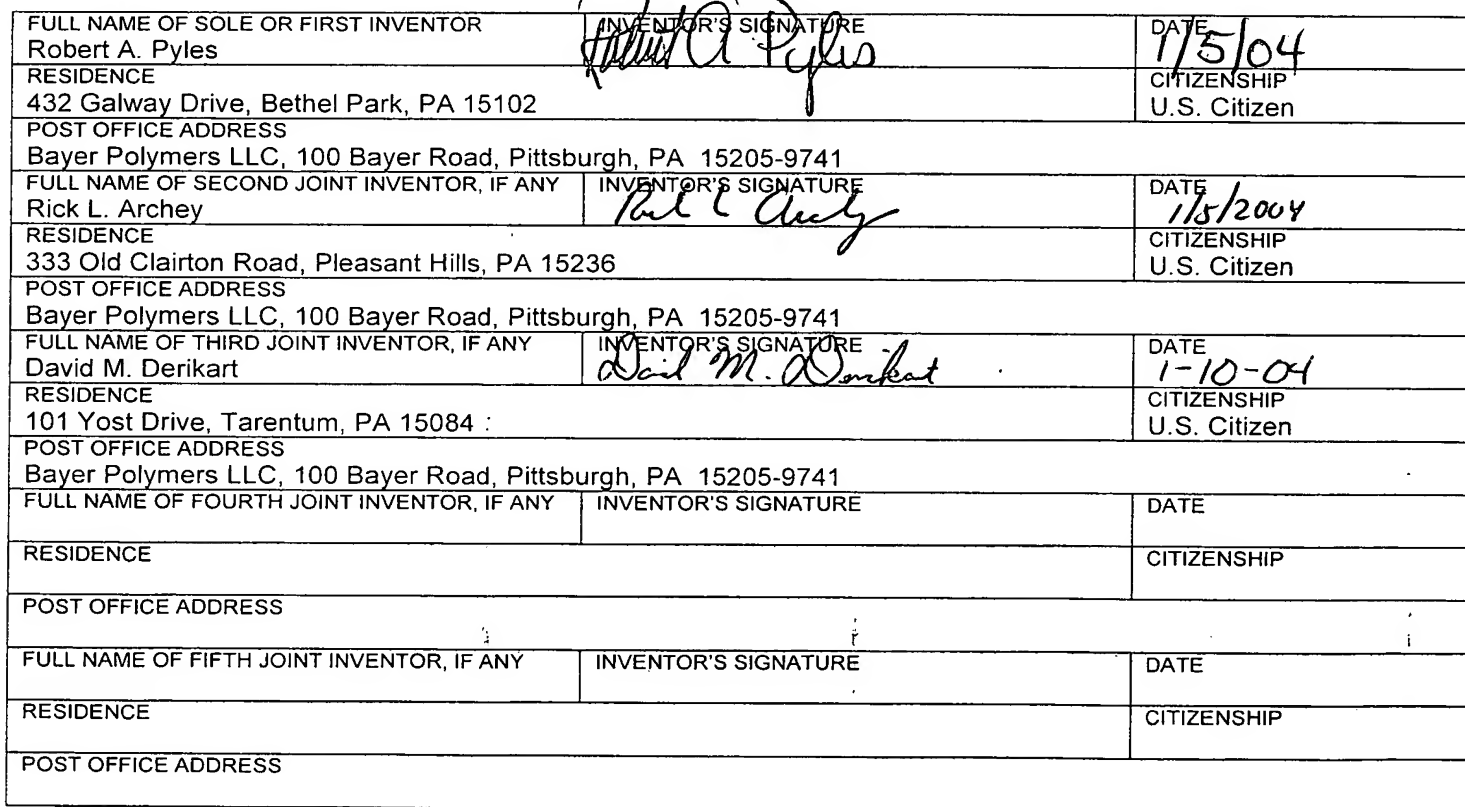 FULL NAME OF SOLE OR FIRST INVENTOR INVENTOR'S SIGNATURE DATE
Robert A. Pyles Robert A Pyles 1/5/04
RESIDENCE CITIZENSHIP
432 Galway Drive, Bethel Park, PA 15102 U.S. Citizen
POST OFFICE ADDRESS
Bayer Polymers LLC, 100 Bayer Road, Pittsburgh, PA 15205-9741
FULL NAME OF SECOND JOINT INVENTOR, IF ANY INVENTOR'S SIGNATURE DATE
Rick L. Archey Rick L Archey 1/5/2004
RESIDENCE CITIZENSHIP
333 Old Clairton Road, Pleasant Hills, PA 15236 U.S. Citizen
POST OFFICE ADDRESS
Bayer Polymers LLC, 100 Bayer Road, Pittsburgh, PA 15205-9741
FULL NAME OF THIRD JOINT INVENTOR, IF ANY INVENTOR'S SIGNATURE DATE
David M. Derikart David M. Derikart 1-10-04
RESIDENCE CITIZENSHIP
101 Yost Drive, Tarentum, PA 15084 U.S. Citizen
POST OFFICE ADDRESS
Bayer Polymers LLC, 100 Bayer Road, Pittsburgh, PA 15205-9741
FULL NAME OF FOURTH JOINT INVENTOR, IF ANY INVENTOR'S SIGNATURE DATE
RESIDENCE CITIZENSHIP
POST OFFICE ADDRESS
FULL NAME OF FIFTH JOINT INVENTOR, IF ANY INVENTOR'S SIGNATURE DATE
RESIDENCE CITIZENSHIP
POST OFFICE ADDRESS